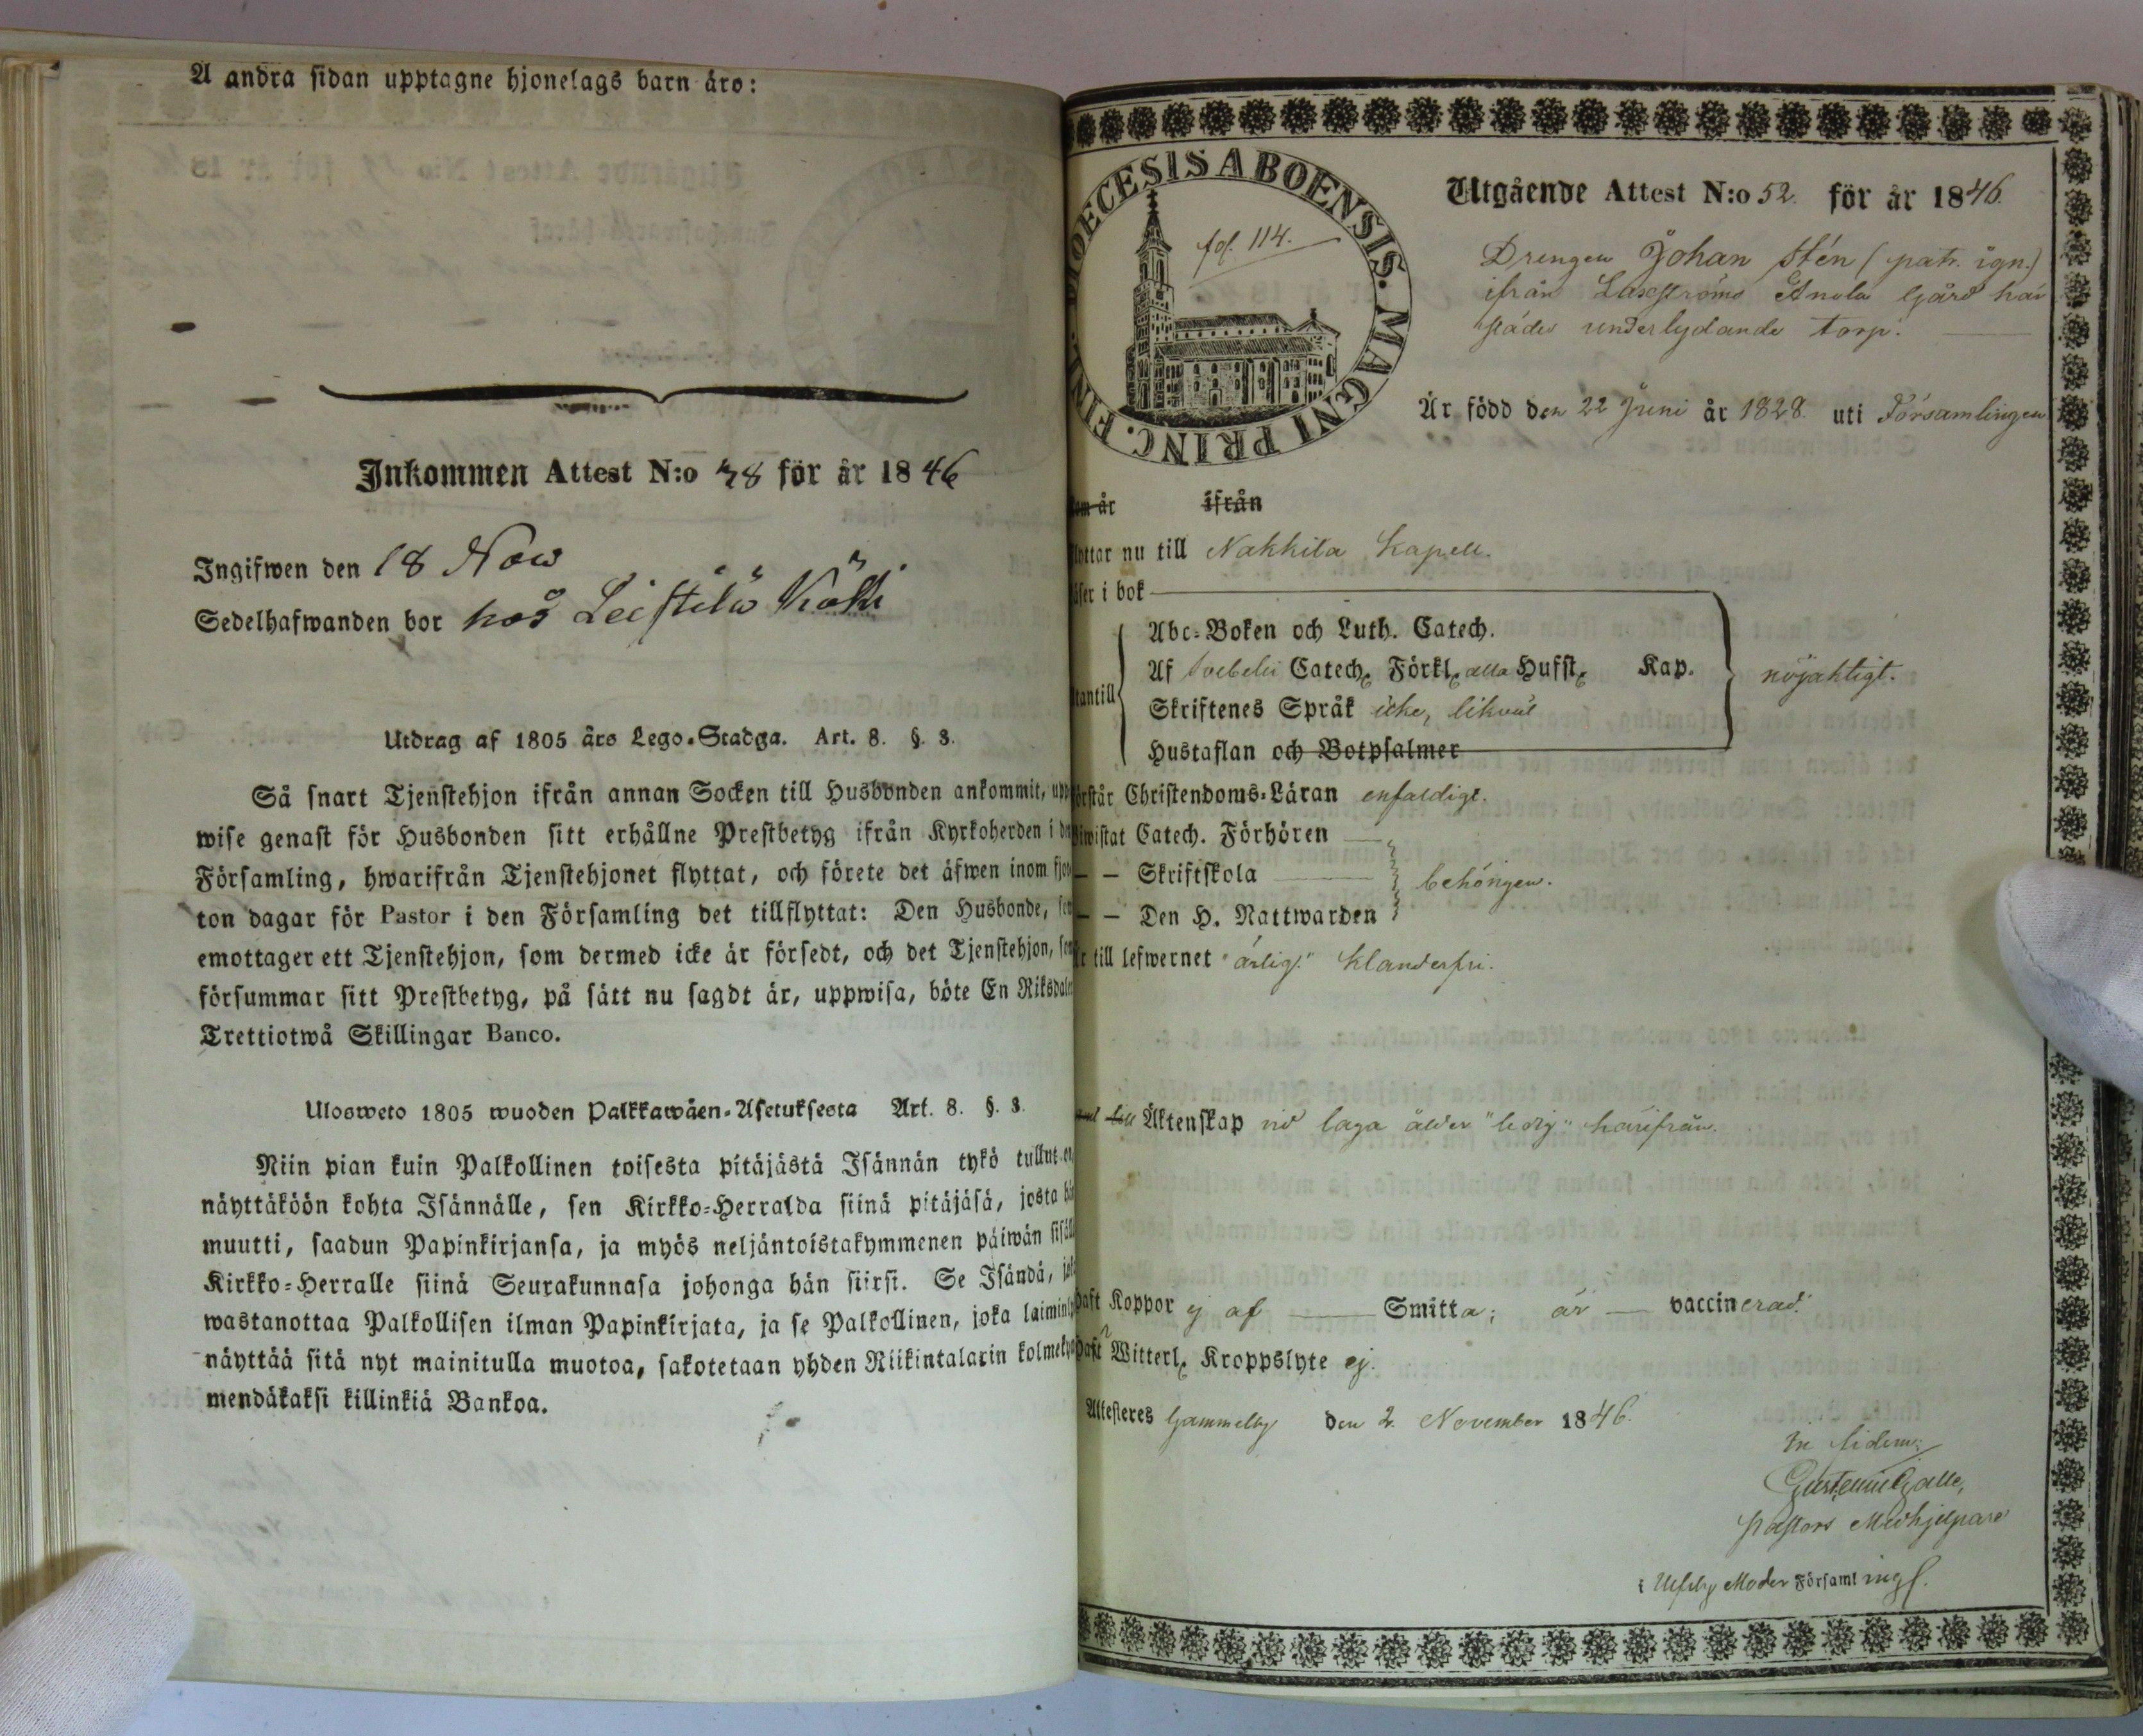 A andra sidan upptagne hjonelags barn äro:
Inkommen Attest N:o 38 för år 1846
Ingifwen den 18 Now
Sedelhafwanden bor hos Leistilä
Utdrag af 1805 års Lego-Stadga. Art. 8. §. 3.
Så snart Tjenstehjon ifrån annan Socken till Husbonden ankommit,
wise genast för Husbonden sitt erhållne Prestbetyg ifrån Kyrkoherden i
Församling, hwarifrån Tjenstehjonet flyttat, och förete det äfwen inom
ton dagar för Pastor i den Församling det tillflyttat: Den Husbonde,
emottager ett Tjenstehjon, som dermed icke är försedt, och det Tjenstehjon,
försummar sitt Prestbetyg, på sätt nu sagdt är, uppwisa, böte En
Trettiotwå Skillingar Banco.
Ulosweto 1805 wuoden Palkkawäen-Asetuksesta Art. 8. §. 3.
Niin pian kuin Palkollinen toisesta pitäjästä Isännän tykö tullut
näyttäköön kohta Isännälle, sen Kirkko-Herralda siinä pitäjäsä, josta
muutti, saadun Papinkirjansa, ja myös neljäntoistakymmenen päiwän
Kirkko-Herralle siinä Seurakunnasa johonga hän siirsi. Se Isändä,
wastanottaa Palkollisen ilman Papinkirjata, ja se Palkollinen, joka
näyttää sitä nyt mainitulla muotoa, sakotetaan yhden Riikintalarin
mendäkaksi killinkiä Bankoa.
DIOECESIS ABOENSIS. MAGNI PRINC. FINL.
fol. 114.
Utgående Attest N:o 52. för år 1846.
Drengen Johan Stén (patr. ign.)
ifrån Laxströms Anola Gård här
städes underlydande torp.
Är född den 22 Juni år 1828. uti Församlingen
år ifrån
nu till Nakkila Kapell.
i bok
Abc-Boken och Luth. Catech.
Af Svebelii Catech. Förkl. alla Hufst. Kap. nöjaktigt.
Skriftenes Språk icke, likväl
Hustaflan och Botpsalmer
Christendoms-Läran enfaldigt.
Catech. Förhören
— — Skriftskola behörigen.
— — Den H. Nattwarden
till lefwernet "ärlig." Klanderfri.
till Äktenskap vid laga ålder "ledig" härifrån.
Koppor ej af — Smitta; är — vaccinerad.
Witterl. Kroppslyte ej.
Attesteres Gammelby den 2. November 1846.
In fidem:
Pastors Medhjelpare
i Ulfsby Moder Församlingf.